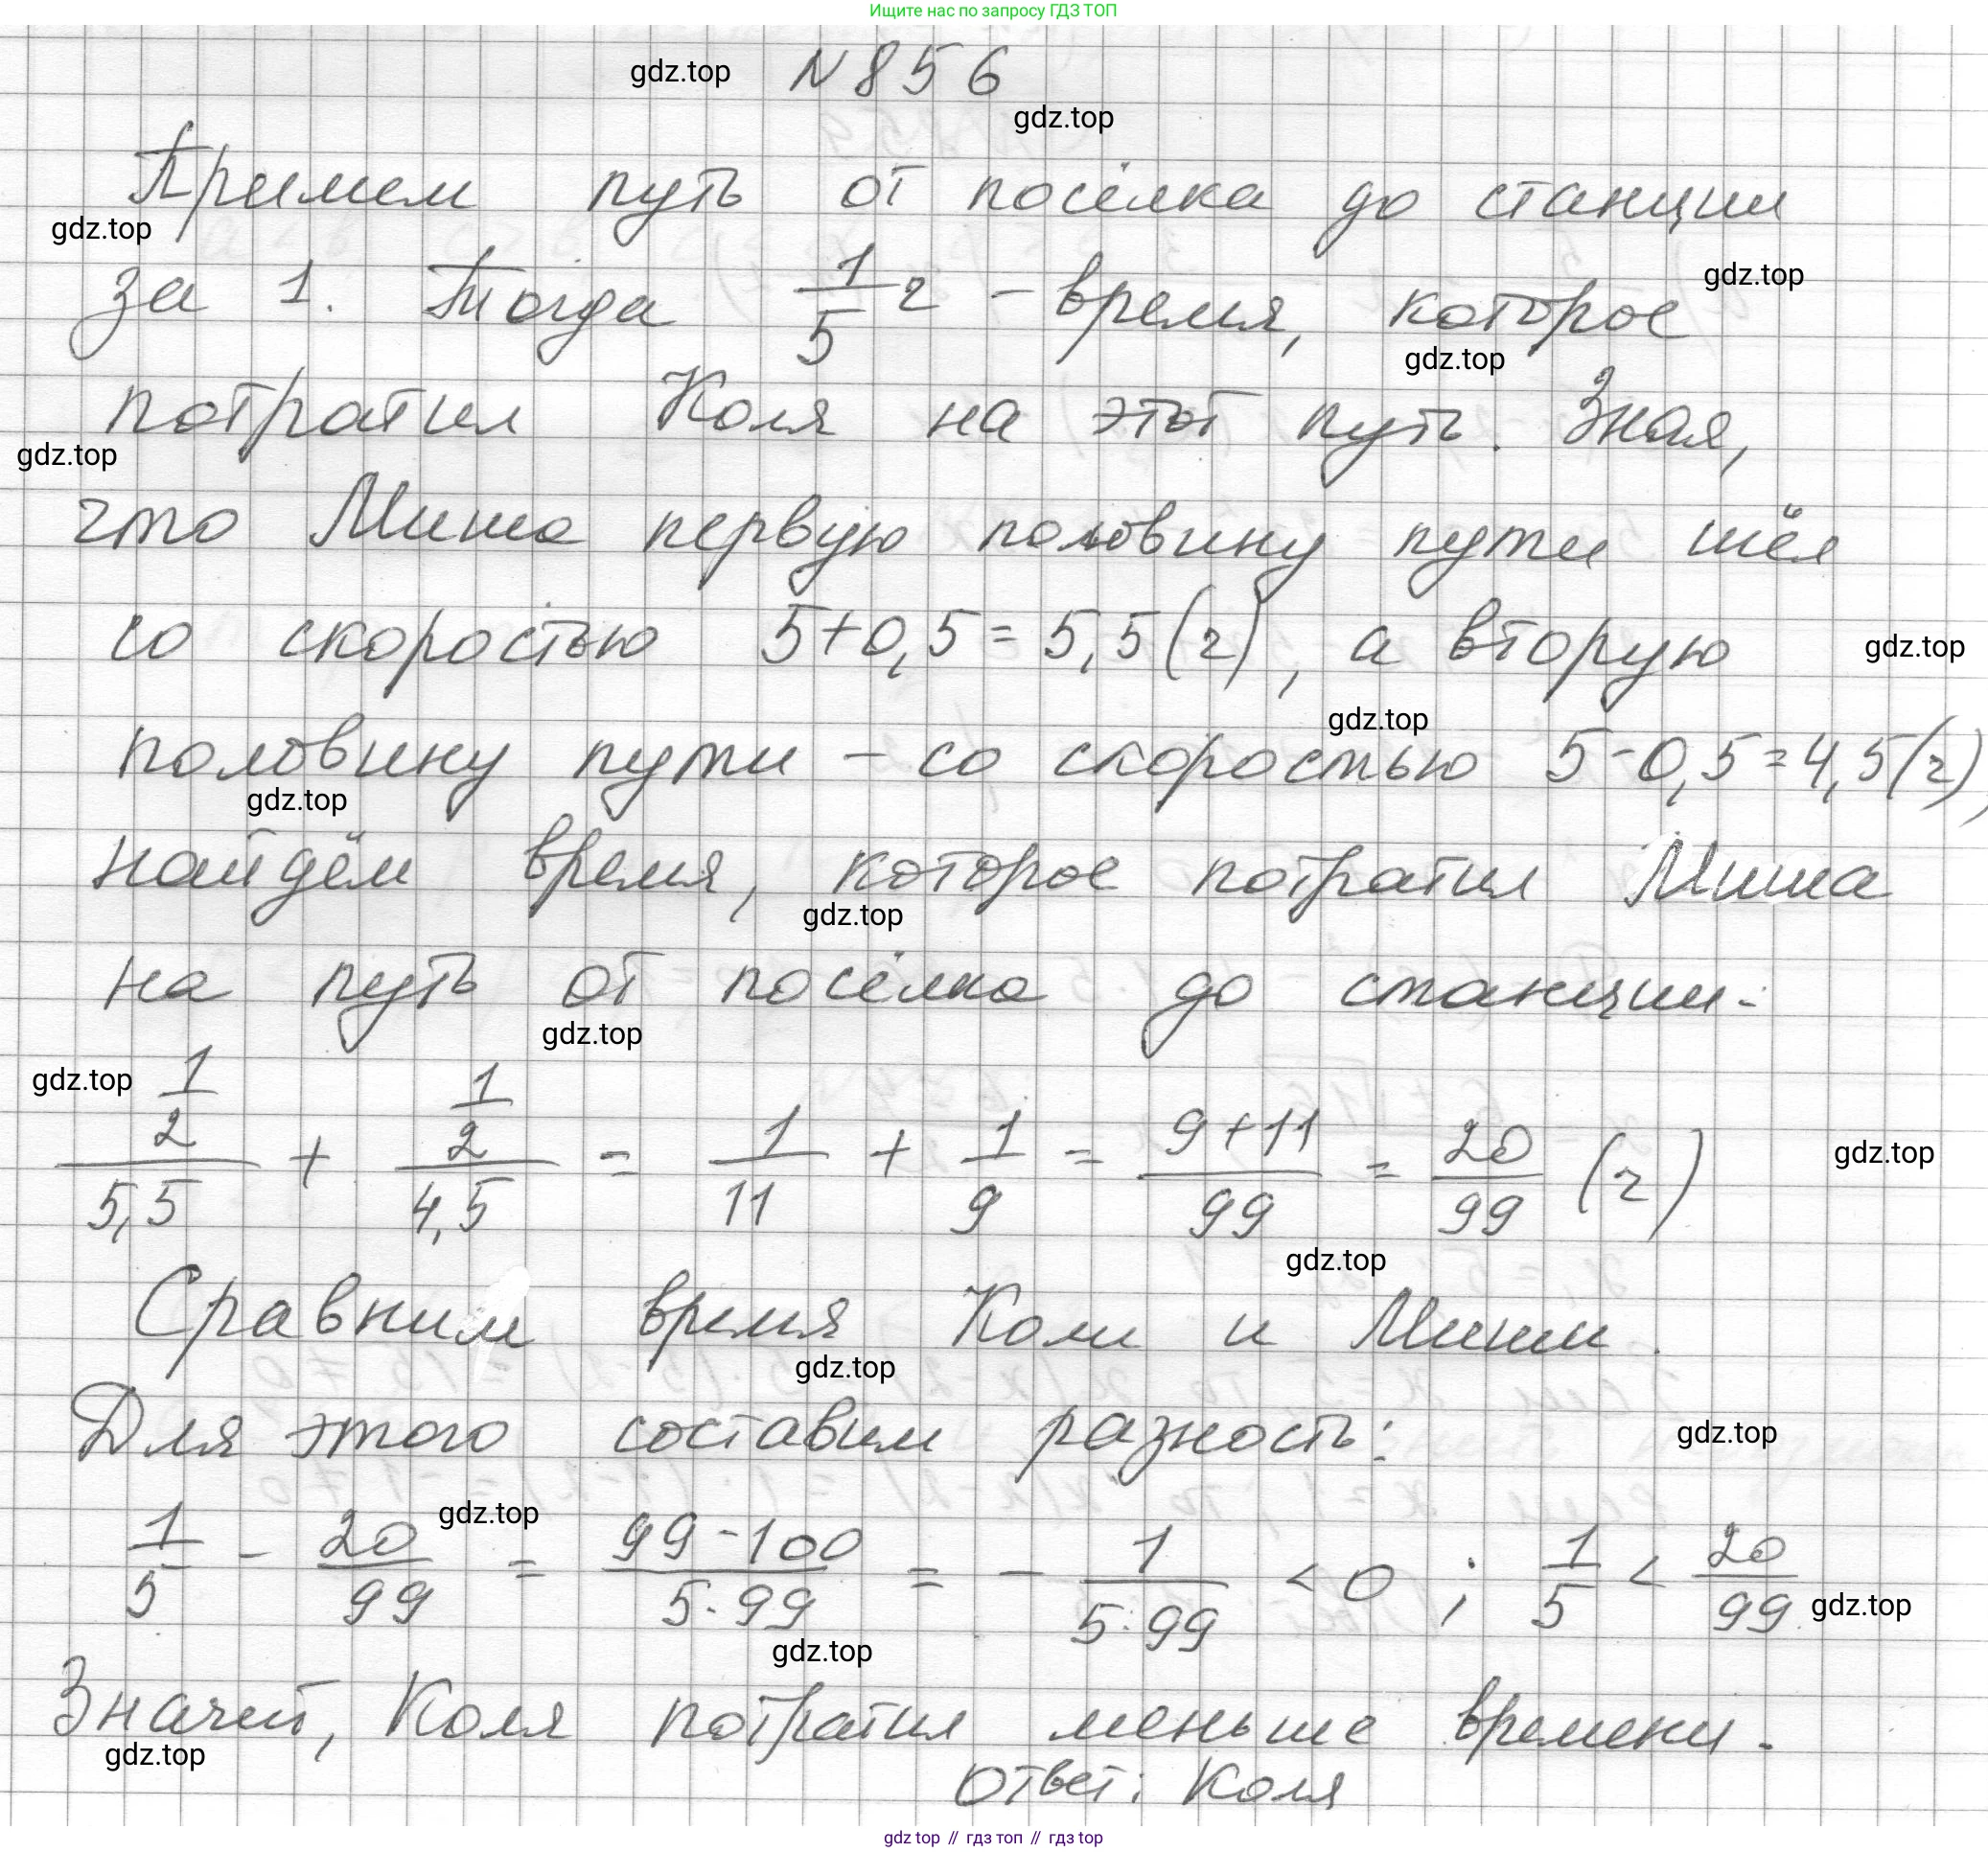 Ищите нас по запросу ГДЗ ТОП
gdz.top N 856
gdz.top
Примем путь от посёлка до станции
gdz.top
за 1. Тогда 1/5 ч – время, которое
gdz.top
gdz.top
потратил Коля на этот путь. Зная,
gdz.top
что Миша первую половину пути шёл
со скоростью 5+0,5=5,5(ч), а вторую
gdz.top
gdz.top
половину пути – со скоростью 5-0,5=4,5(ч),
gdz.top
найдём время, которое потратил Миша
gdz.top
на путь от посёлка до станции:
gdz.top
gdz.top
(1/2)/5,5 + (1/2)/4,5 = 1/11 + 1/9 = (9+11)/99 = 20/99 (ч)
gdz.top
gdz.top
Сравним время Коли и Миши.
gdz.top
Для этого составим разность:
gdz.top
gdz.top
1/5 - 20/99 = (99-100)/(5·99) = - 1/(5·99) < 0 ; 1/5 < 20/99
gdz.top
gdz.top
Значит, Коля потратил меньше времени.
gdz.top
Ответ: Коля
gdz top // гдз топ // гдз top